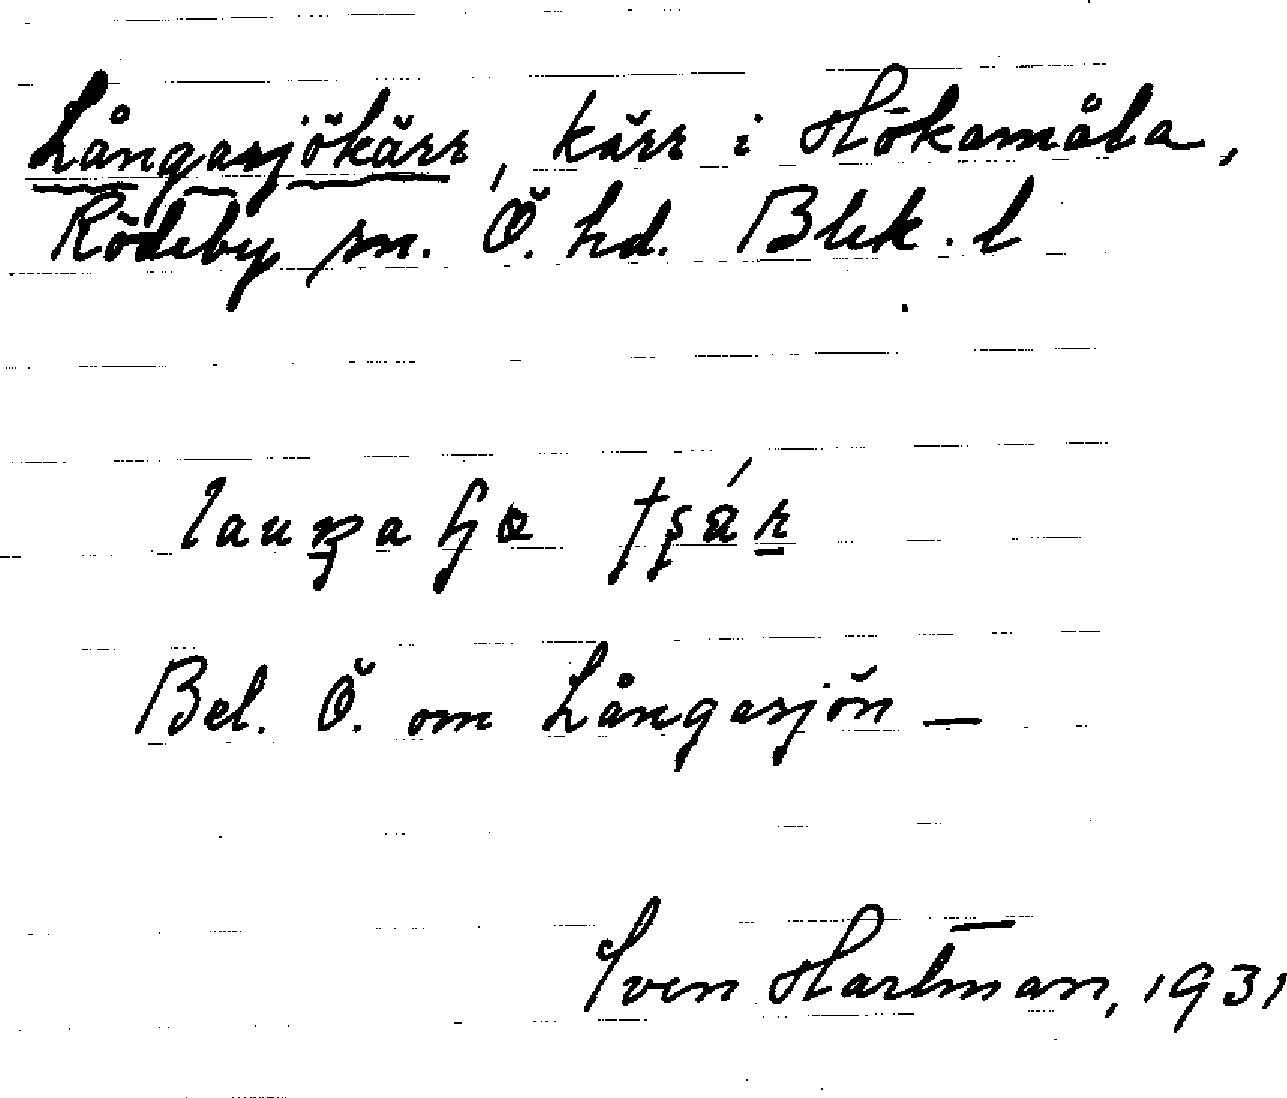 Långasjökärr, kärr i Hökamåla,
Rödeby sn. Ö. hd. Blek. l
Bel. Ö. om Långasjön —
Sven Hartman, 1931